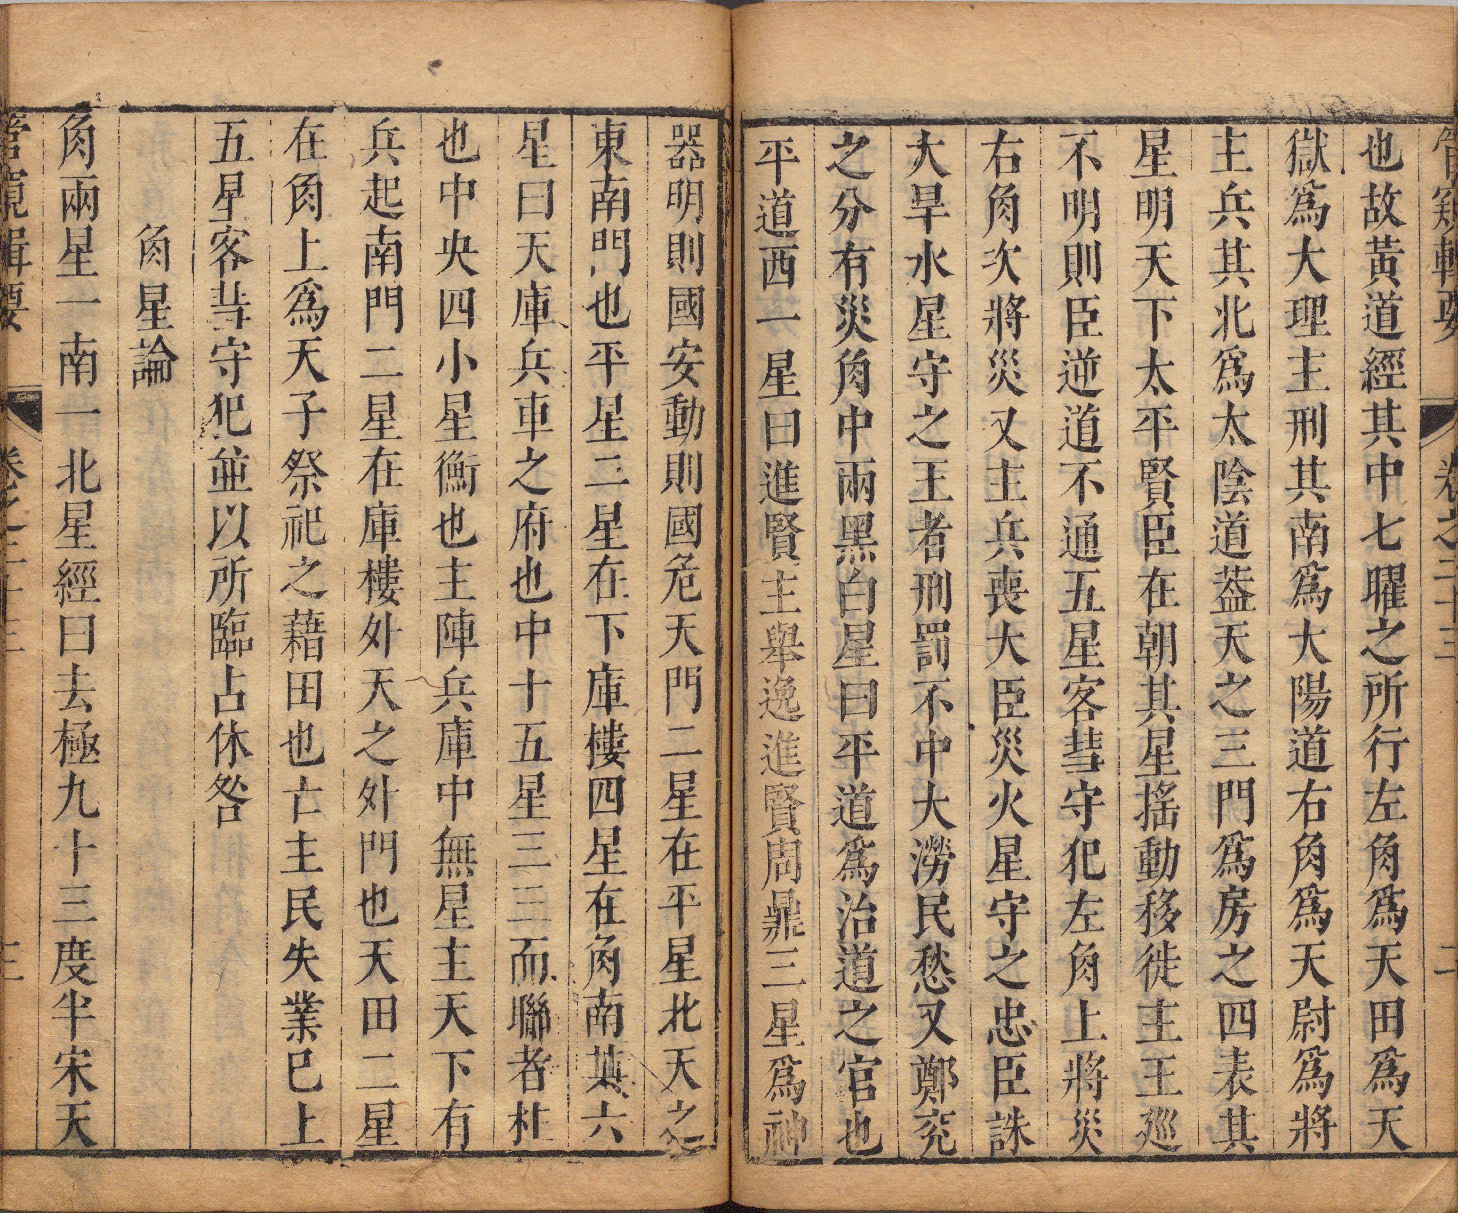 管窺輯要
卷之二十三
二
也故黃道經其中七曜之所行左角爲天田爲天
獄爲大理主刑其南爲太陽道右角爲天尉爲將
主兵其北爲太陰道葢天之三門爲房之四表其
星明天下太平賢臣在朝其星搖動移徙主王廵
不明則臣逆道不通五星客彗守犯左角上將災
右角次將災又主兵喪大臣災火星守之忠臣誅
大旱水星守之王者刑罰不中大澇民愁又鄭兖
之分有災角中兩黑白星曰平道爲治道之官也
平道西一星曰進賢主舉逸進賢周鼎三星爲神
器明則國安動則國危天門二星在平星北天之
東南門也平星二星在下庫樓四星在角南其六
星曰天庫兵車之府也中十五星三三而聯者杜
也中央四小星衡也主陣兵庫中無星主天下有
兵起南門二星在庫樓外天之外門也天田二星
在角上爲天子祭祀之藉田也亡主民失業巳上
五星客彗守犯並以所臨占休咎
角星論
角兩星一南一北星經曰去極九十三度半宋天
管窺輯要
卷之二十三
三